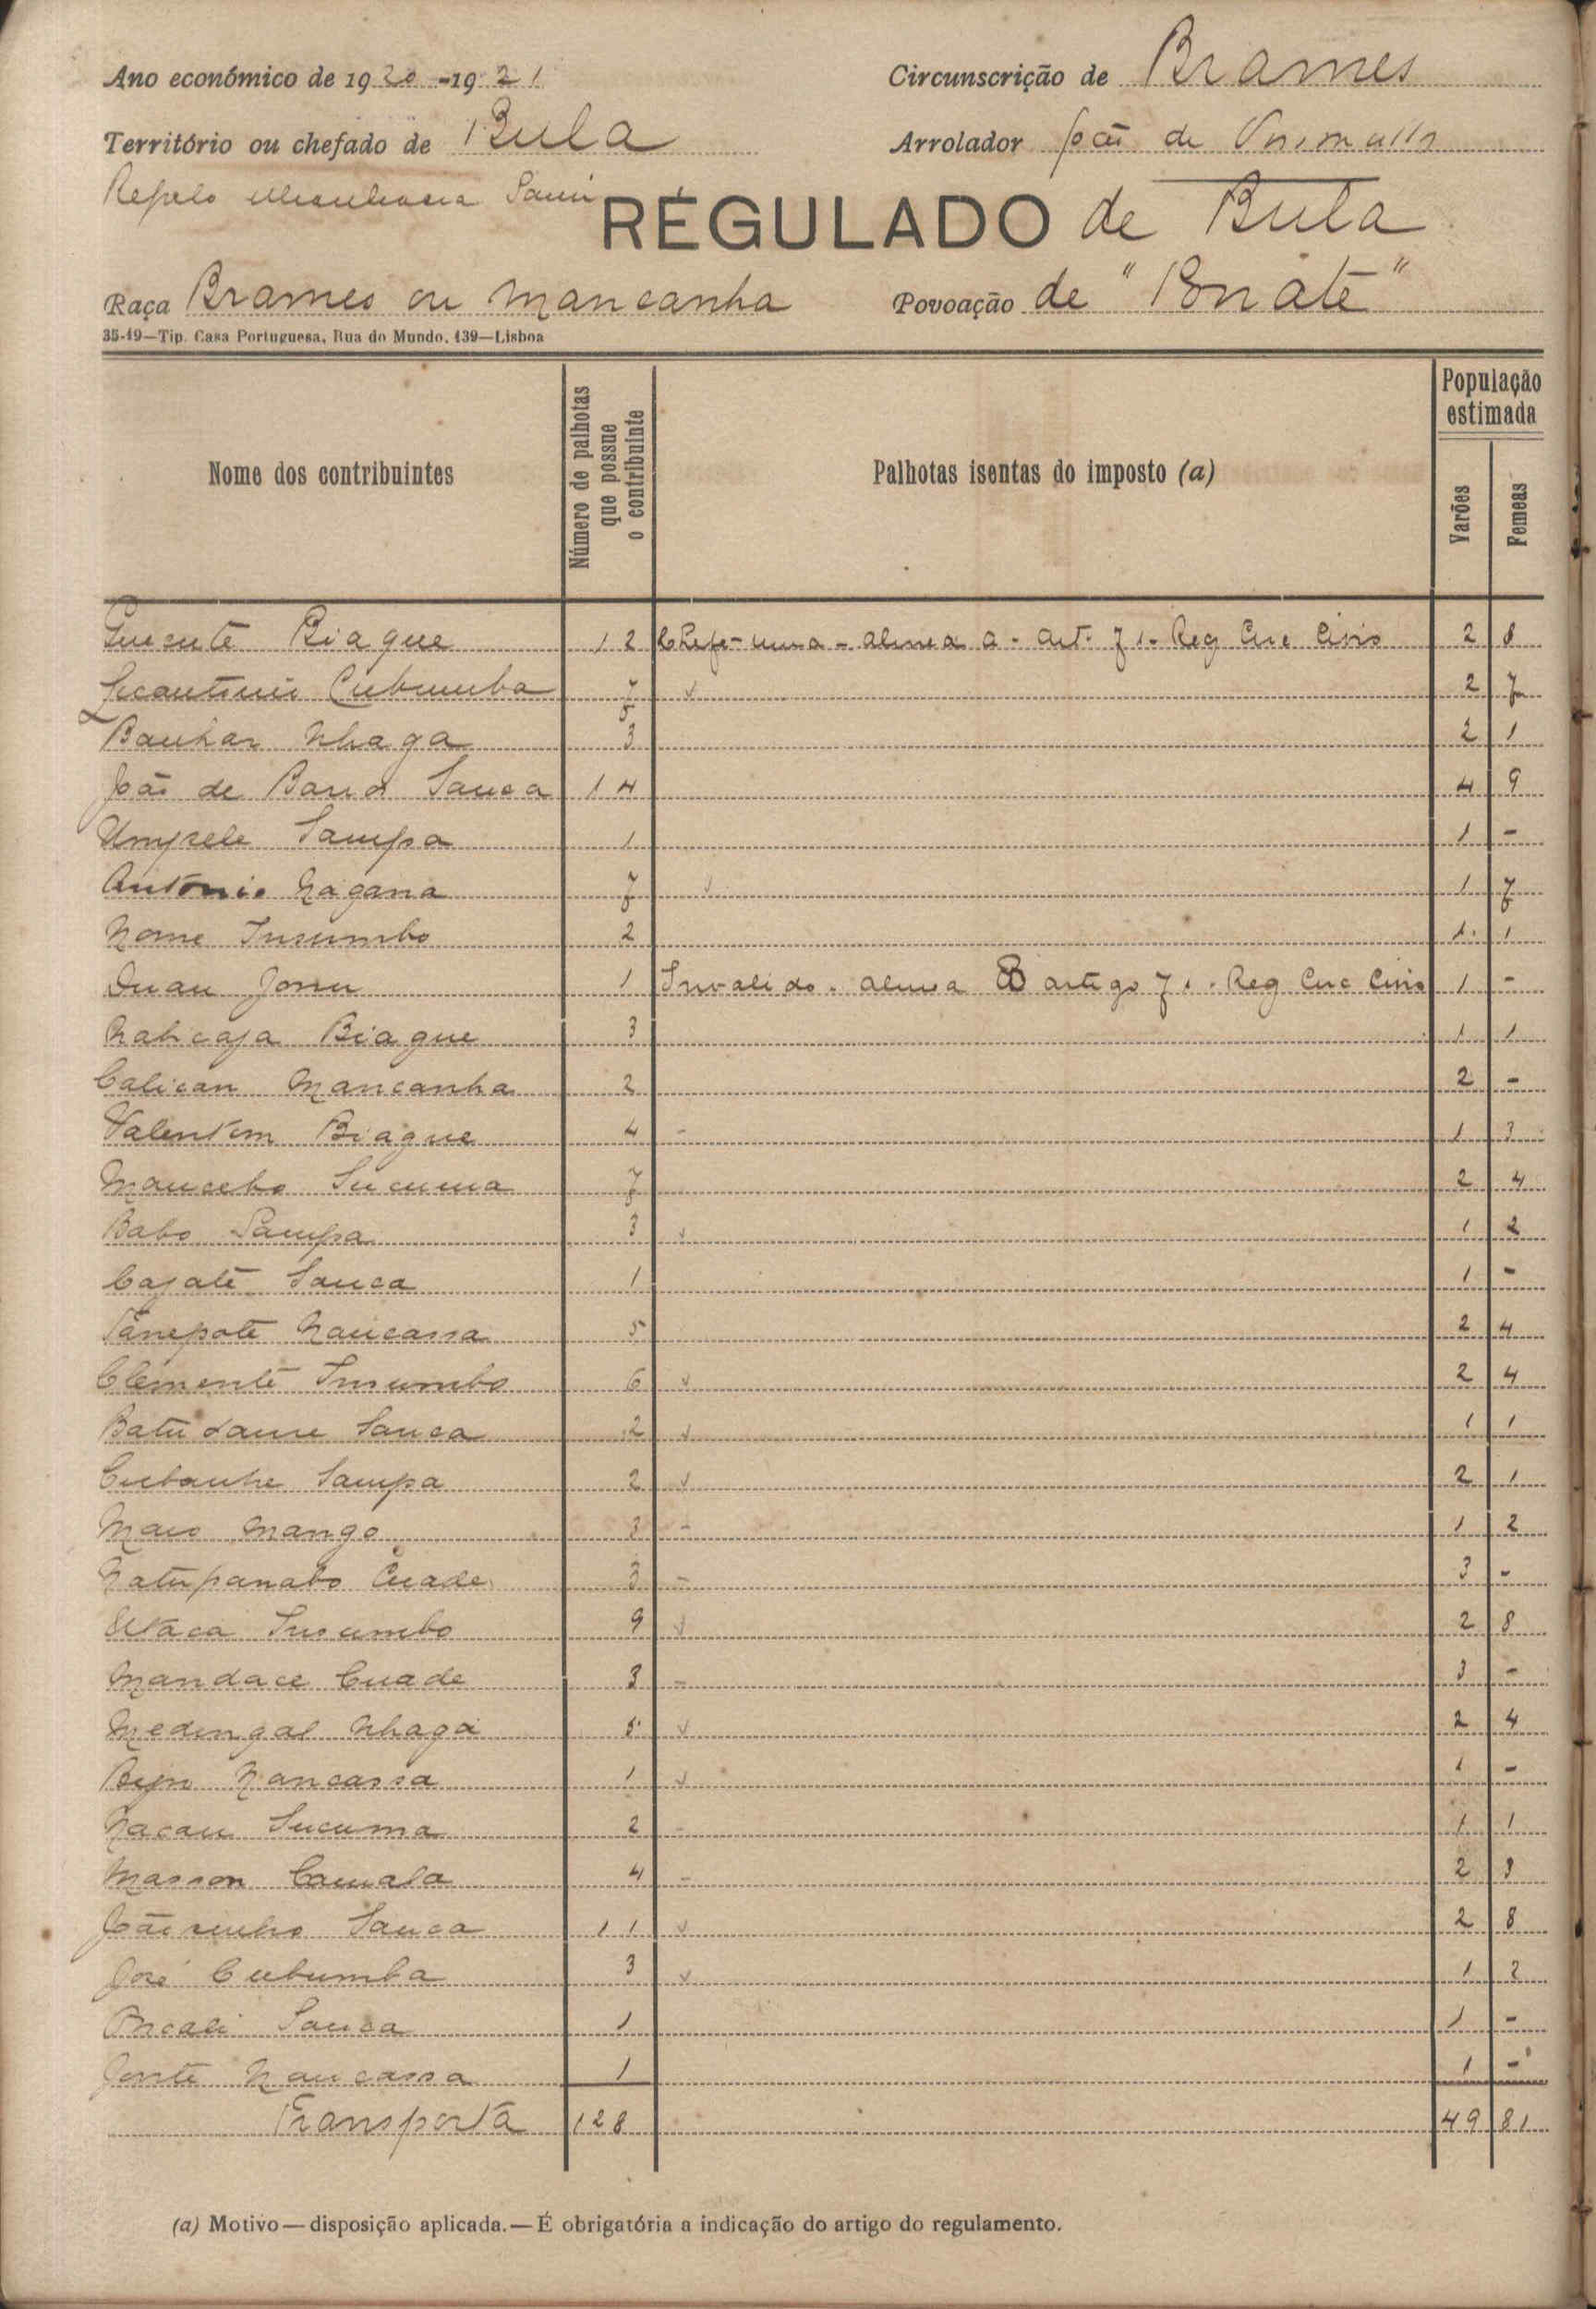 Ano económico de 1920-1921
Circunscrição de Brames
Território ou chefado de Bula
Arrolador João de
REGULADO de Bula
Raça Brames ou Mancanha
Povoação de "Ponate"
35-19—Tip. Casa Portuguesa, Rua do Mundo, 139—Lisboa
Nome dos contribuintes
Número de palhotas que possue o contribuinte
Palhotas isentas do imposto (a)
População estimada
Varões
Femeas
Biague 12 Chefe - uma - alinea a - art. 71 - Reg Circ Civis 2 8
Cubumba 7 2 7
Nhaga 3 2 1
João de Sanca 14 4 9
Sampa 1 1 -
Antonio Nagana 7 1 7
Nome Insumbo 2 1 1
1 Invalido. alinea B artigo 71. Reg Circ Civis 1 -
Biague 3 1 1
Calican Mancanha 2 2 -
Valentim Biague 4 - 1 3
Mancebo Sucuma 7 2 4
Babo Sampa 3 1 2
Cajate Sanca 1 1 -
Tanepote Nancassa 5 2 4
Clemente Insumbo 6 2 4
Sanca 2 1 1
Cubanhe Sampa 2 2 1
Maio Mango 3 - 1 2
Natupanabo Cuade 3 - 3 -
Utaca Insumbo 9 2 8
Mandace Cuade 3 - 3 -
Medingal Nhaga 5 2 4
Nancassa 1 1 -
Nacau Sucuma 2 - 1 1
Masson Camala 4 - 2 3
Joãosinho Sanca 11 2 8
José Cubumba 3 1 2
Sanca 1 1 -
Jonte Nancassa 1 1 -
Transporta 128 49 81
(a) Motivo—disposição aplicada.—É obrigatória a indicação do artigo do regulamento.